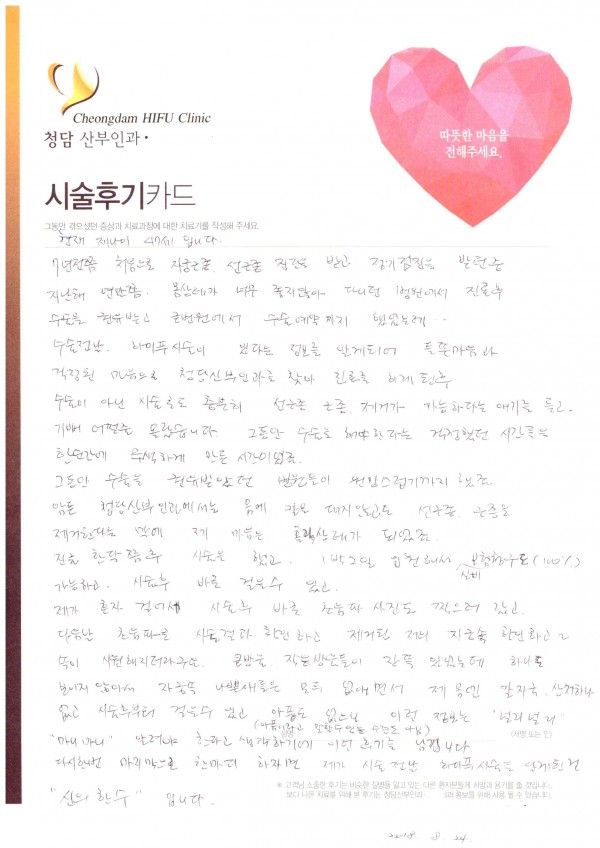 Cheongdam HIFU Clinic
청담 산부인과
따뜻한 마음을
전해주세요.
시술후기카드
그동안 겪으셨던 증상과 치료과정에 대한 치료기를 작성해 주세요.
현재 제나이 47세 입니다.
7년전쯤 처음으로 자궁근종, 선근종 진단을 받고 정기검진을 받던중
지난해 연말쯤, 몸상태가 너무 좋지않아 다니던 병원에서 진료후
수술을 권유받고 큰병원에서 수술예약까지 했었는데..
수술전날, 하이푸시술이 있다는 정보를 알게되어
걱정된 마음으로 청담산부인과를 찾아 진료를 하게 됐죠
수술이 아닌 시술로도 충분히 선근종, 근종, 제거가 가능하다는 얘기를 듣고,
기뻐 어쩔줄 몰랐습니다. 그동안 수술로 해야한다는 걱정했던 시간들을
한순간에 무색하게 만든 시간이었죠.
그동안 수술을 권유받았던 병원들이 원망스럽기까지 했죠
암튼 청담산부인과에서는 몸에 칼도 대지않고도 선근종, 근종을
제거한다는 말에 제 마음은 되었죠.
진료 한달쯤후 시술을 했고, 1박2일 입원해서 실비 보험청구도 (100%)
가능하고, 시술후 바로 걸을수 있고,
제가 혼자 걸어서 시술후 바로 초음파 사진도 찍으러 갔고,
다음날 초음파로 시술결과 확인하고 제거된 저의 자궁속 확인하고
속이 시원해지더라구요. 까맣게 있었는데 하나도
보이지않아서 자궁속 나쁜애들은 모두 없애면서 제 몸엔 칼자국, 상처하나
없고 시술후부터 걸을수 있고 아픔도 없으니 이런 정보는 "널리널리"
(아픔이라고 말할수있는 수준은 아님)
성명
(서명 또는 인)
"마니마니" 알려야 한다고 생각하기에 이런 후기를 남깁니다
다시한번 마지막으로 한마디 하자면 제가 시술전날 하이푸시술을 알게된건
※ 고객님 소중한 후기는 비슷한 질병을 앓고 있는 다른 환자분들께 희망과 용기를 줄 것입니다.
보다 나은 치료를 위해 본 후기는 청담산부인과 홍보를 위해 사용 될 수 있습니다.
"신의 한수" 입니다.
2018. 8. 24.